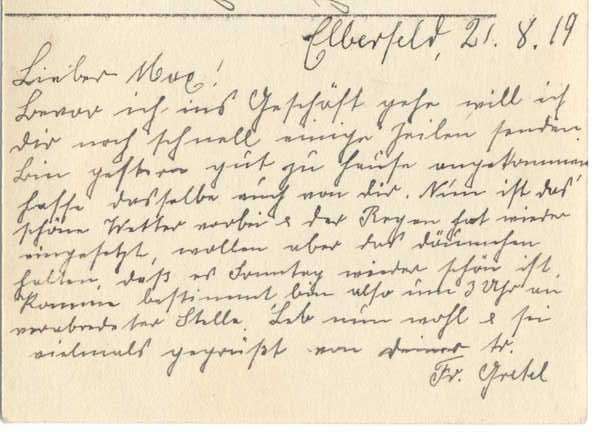 Elberfeld, 21. 8. 19
Lieber Max!
Bevor ich ins Geschäft gehe will ich
dir noch schnell einige Zeilen senden.
Bin gestern gut zu Hause angekommen
hoffe dasselbe auch von dir. Nun ist das
schöne Wetter vorbei & der Regen hat wieder
eingesetzt, wollen aber das däumchen
halten, daß es Sonntag wieder schön ist.
Komme bestimmt, bin also um 3 Uhr an
verabredeter Stelle. Leb nun wohl & sei
vielmals gegrüßt von deiner tr.
Fr. Gretel